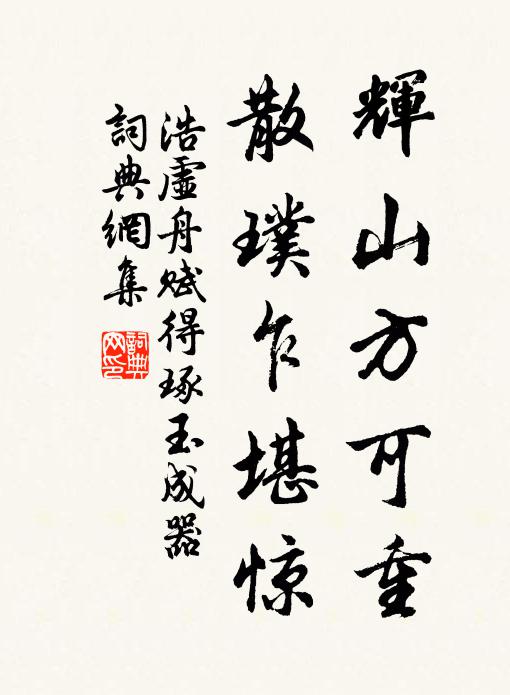 輝山方可重
散璞乍堪惊
浩虚舟赋得琢玉成器
詞典網集
詞典网印